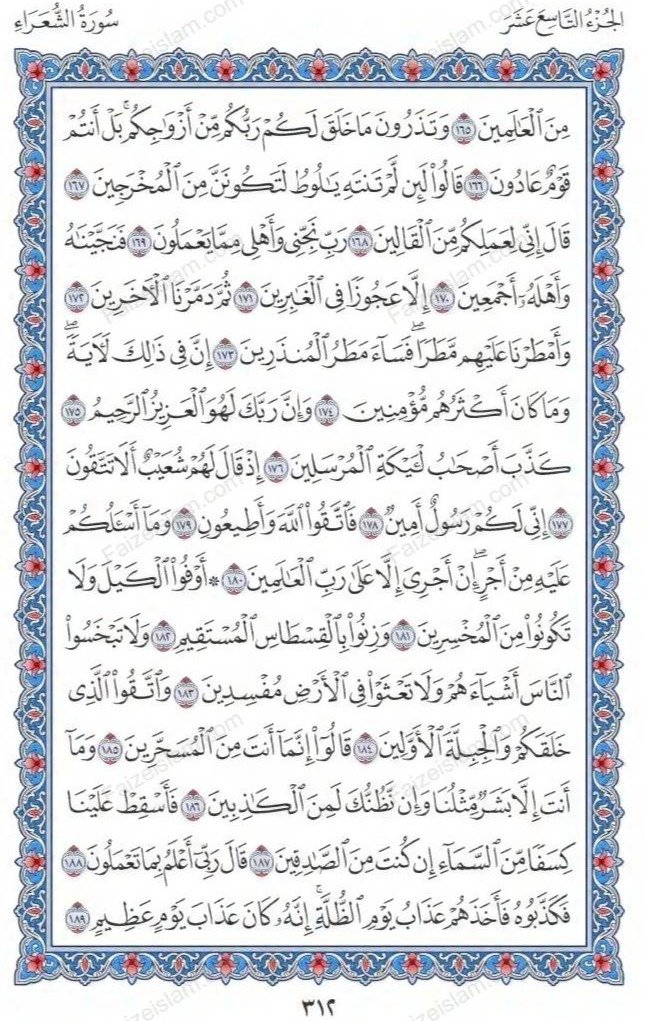 الجُزْءُ التَّاسِعَ عَشَرَ
سُورَةُ الشُّعَرَاءِ
مِنَ ٱلْعَٰلَمِينَ ١٦٥ وَتَذَرُونَ مَا خَلَقَ لَكُمْ رَبُّكُم مِّنْ أَزْوَٰجِكُم ۚ بَلْ أَنتُمْ
قَوْمٌ عَادُونَ ١٦٦ قَالُوا۟ لَئِن لَّمْ تَنتَهِ يَٰلُوطُ لَتَكُونَنَّ مِنَ ٱلْمُخْرَجِينَ ١٦٧
قَالَ إِنِّى لِعَمَلِكُم مِّنَ ٱلْقَالِينَ ١٦٨ رَبِّ نَجِّنِى وَأَهْلِى مِمَّا يَعْمَلُونَ ١٦٩ فَنَجَّيْنَٰهُ
وَأَهْلَهُۥٓ أَجْمَعِينَ ١٧٠ إِلَّا عَجُوزًا فِى ٱلْغَٰبِرِينَ ١٧١ ثُمَّ دَمَّرْنَا ٱلْءَاخَرِينَ ١٧٢
وَأَمْطَرْنَا عَلَيْهِم مَّطَرًا ۖ فَسَآءَ مَطَرُ ٱلْمُنذَرِينَ ١٧٣ إِنَّ فِى ذَٰلِكَ لَءَايَةً ۖ
وَمَا كَانَ أَكْثَرُهُم مُّؤْمِنِينَ ١٧٤ وَإِنَّ رَبَّكَ لَهُوَ ٱلْعَزِيزُ ٱلرَّحِيمُ ١٧٥
كَذَّبَ أَصْحَٰبُ لْـَٔيْكَةِ ٱلْمُرْسَلِينَ ١٧٦ إِذْ قَالَ لَهُمْ شُعَيْبٌ أَلَا تَتَّقُونَ
١٧٧ إِنِّى لَكُمْ رَسُولٌ أَمِينٌ ١٧٨ فَٱتَّقُوا۟ ٱللَّهَ وَأَطِيعُونِ ١٧٩ وَمَآ أَسْـَٔلُكُمْ
عَلَيْهِ مِنْ أَجْرٍ ۖ إِنْ أَجْرِىَ إِلَّا عَلَىٰ رَبِّ ٱلْعَٰلَمِينَ ١٨٠ * أَوْفُوا۟ ٱلْكَيْلَ وَلَا
تَكُونُوا۟ مِنَ ٱلْمُخْسِرِينَ ١٨١ وَزِنُوا۟ بِٱلْقِسْطَاسِ ٱلْمُسْتَقِيمِ ١٨٢ وَلَا تَبْخَسُوا۟
ٱلنَّاسَ أَشْيَآءَهُمْ وَلَا تَعْثَوْا۟ فِى ٱلْأَرْضِ مُفْسِدِينَ ١٨٣ وَٱتَّقُوا۟ ٱلَّذِى
خَلَقَكُمْ وَٱلْجِبِلَّةَ ٱلْأَوَّلِينَ ١٨٤ قَالُوٓا۟ إِنَّمَآ أَنتَ مِنَ ٱلْمُسَحَّرِينَ ١٨٥ وَمَآ
أَنتَ إِلَّا بَشَرٌ مِّثْلُنَا وَإِن نَّظُنُّكَ لَمِنَ ٱلْكَٰذِبِينَ ١٨٦ فَأَسْقِطْ عَلَيْنَا
كِسَفًا مِّنَ ٱلسَّمَآءِ إِن كُنتَ مِنَ ٱلصَّٰدِقِينَ ١٨٧ قَالَ رَبِّىٓ أَعْلَمُ بِمَا تَعْمَلُونَ ١٨٨
فَكَذَّبُوهُ فَأَخَذَهُمْ عَذَابُ يَوْمِ ٱلظُّلَّةِ ۚ إِنَّهُۥ كَانَ عَذَابَ يَوْمٍ عَظِيمٍ ١٨٩
Faizeislam.com
٣١٢